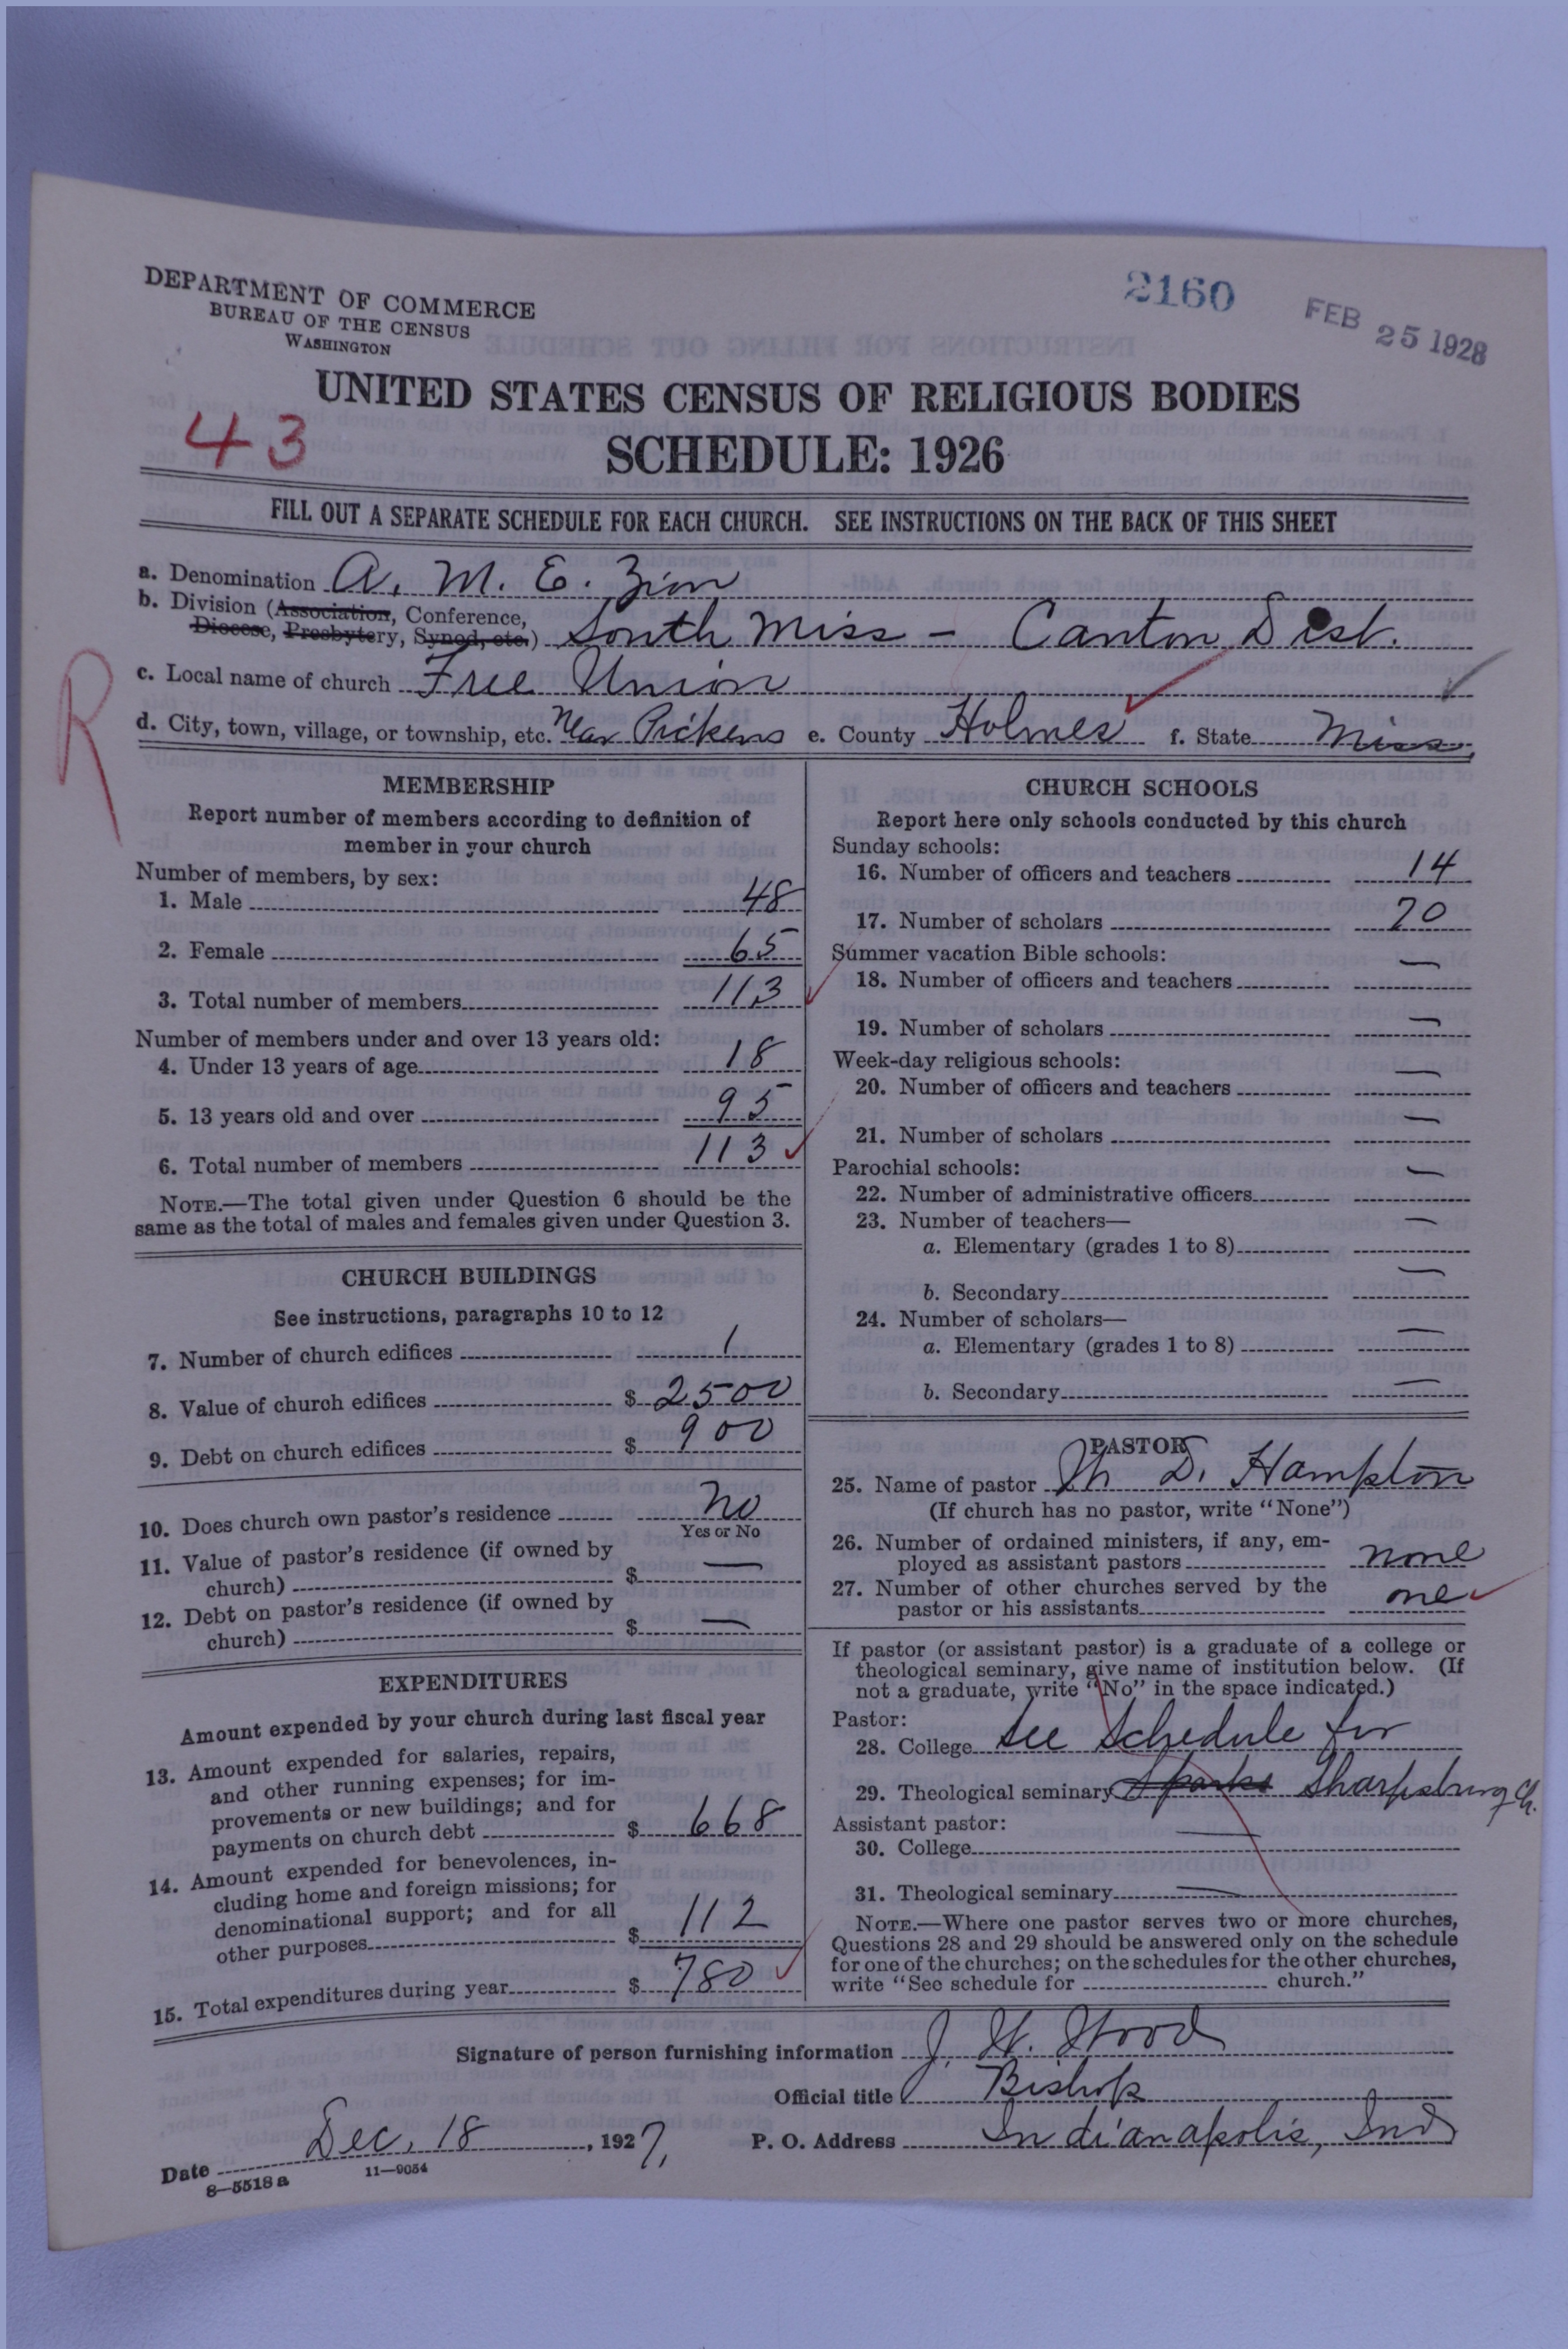 DEPARTMENT OF COMMERCE
BUREAU OF THE CENSUS
WASHINGTON
2160
FEB 25 1928
UNITED STATES CENSUS OF RELIGIOUS BODIES
43
SCHEDULE: 1926
FILL OUT A SEPARATE SCHEDULE FOR EACH CHURCH. SEE INSTRUCTIONS ON THE BACK OF THIS SHEET
a. Denomination A. M. E. Zion
b. Division (Association, Conference,
Diocese, Presbytery, Synod, etc.) South Miss - Canton Dist.
R
c. Local name of church Free Union
d. City, town, village, or township, etc. Near Pickens e. County Holmes f. State Miss.
MEMBERSHIP
Report number of members according to definition of
member in your church
Number of members, by sex:
1. Male 48
2. Female 65
3. Total number of members 113
Number of members under and over 13 years old:
4. Under 13 years of age 18
5. 13 years old and over 95
6. Total number of members 113
NOTE.—The total given under Question 6 should be the
same as the total of males and females given under Question 3.
CHURCH BUILDINGS
See instructions, paragraphs 10 to 12
7. Number of church edifices 1
8. Value of church edifices $ 2500
9. Debt on church edifices $ 900
10. Does church own pastor's residence no
Yes or No
11. Value of pastor's residence (if owned by
church) $ —
12. Debt on pastor's residence (if owned by
church) $ —
EXPENDITURES
Amount expended by your church during last fiscal year
13. Amount expended for salaries, repairs,
and other running expenses; for im-
provements or new buildings; and for
payments on church debt $ 668
14. Amount expended for benevolences, in-
cluding home and foreign missions; for
denominational support; and for all
other purposes $ 112
15. Total expenditures during year $ 780
CHURCH SCHOOLS
Report here only schools conducted by this church
Sunday schools:
16. Number of officers and teachers 14
17. Number of scholars 70
Summer vacation Bible schools:
18. Number of officers and teachers —
19. Number of scholars —
Week-day religious schools:
20. Number of officers and teachers —
21. Number of scholars —
Parochial schools:
22. Number of administrative officers —
23. Number of teachers—
a. Elementary (grades 1 to 8) —
b. Secondary —
24. Number of scholars—
a. Elementary (grades 1 to 8) —
b. Secondary —
PASTOR
25. Name of pastor D. Hampton
(If church has no pastor, write "None")
26. Number of ordained ministers, if any, em-
ployed as assistant pastors none
27. Number of other churches served by the
pastor or his assistants one
If pastor (or assistant pastor) is a graduate of a college or
theological seminary, give name of institution below. (If
not a graduate, write "No" in the space indicated.)
Pastor:
28. College See Schedule for
29. Theological seminary Sparks Sharpsburg Ch.
Assistant pastor:
30. College —
31. Theological seminary —
NOTE.—Where one pastor serves two or more churches,
Questions 28 and 29 should be answered only on the schedule
for one of the churches; on the schedules for the other churches,
write "See schedule for church."
Signature of person furnishing information J. W. Wood
Official title Bishop
Date Dec. 18, 1927, P. O. Address Indianapolis, Ind
8—5518a 11—9054